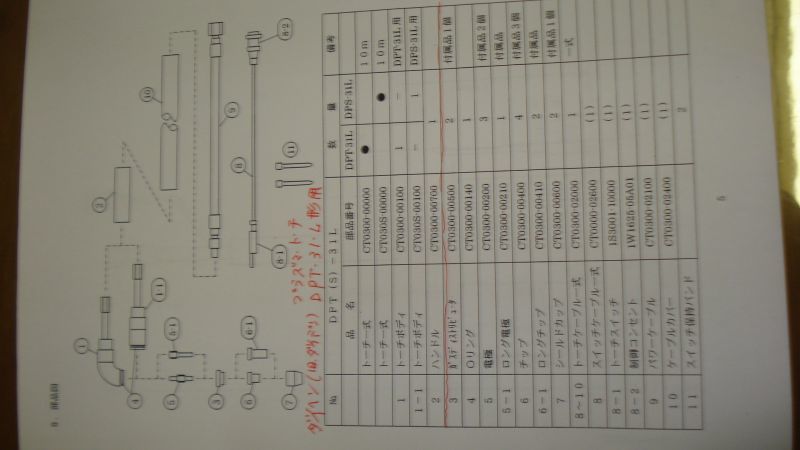 8 部品図
① ①-1 ② ③ ④ ⑤ ⑤-1 ⑥ ⑥-1 ⑦ ⑧ ⑧-1 ⑧-2 ⑨ ⑩ ⑪
プラズマ・トーチ
DPT・31・L形用
DPT(S)-31L
№ 品名 部品番号 数量 備考
DPT-31L DPS-31L
トーチ一式 CT0300-00000 ● 10m
トーチ一式 CT030S-00000 ● 10m
1 トーチボディ CT0300-00100 1 − DPT-31L用
1−1 トーチボディ CT030S-00100 − 1 DPS-31L用
2 ハンドル CT0300-00700 1
3 ガスディストリビュータ CT0300-00500 2 付属品1個
4 Oリング CT0300-00140 1
5 電極 CT0300-00200 3 付属品2個
5−1 ロング電極 CT0300-00210 1 付属品
6 チップ CT0300-00400 4 付属品3個
6−1 ロングチップ CT0300-00410 2 付属品
7 シールドカップ CT0300-00600 2 付属品1個
8~10 トーチケーブル一式 CT0300-02000 1 一式
8 スイッチケーブル一式 CT0000-02600 (1)
8−1 トーチスイッチ 1S3001-10000 (1)
8−2 制御コンセント 1W1625-05A01 (1)
9 パワーケーブル CT0300-02100 (1)
10 ケーブルカバー CT0300-02400 (1)
11 スイッチ保持バンド 2
5